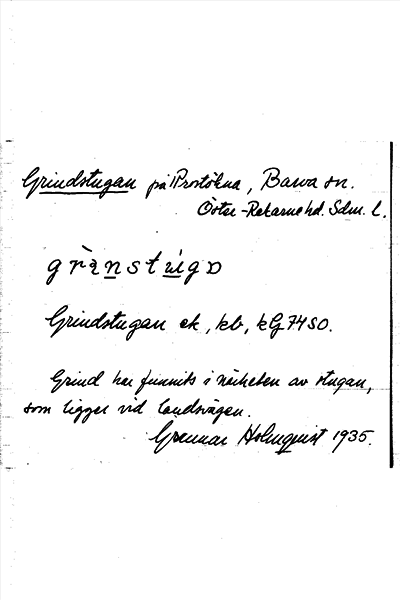 Grindstugan på Prostökna, Barva sn.
Öster-Rekarne hd. Sdm. l.
grinstugo
Grindstugan ek, kb, kG 74 SO.
Grind har funnits i närheten av stugan,
som ligger vid landsvägen.
Gunnar Holmquist 1935.